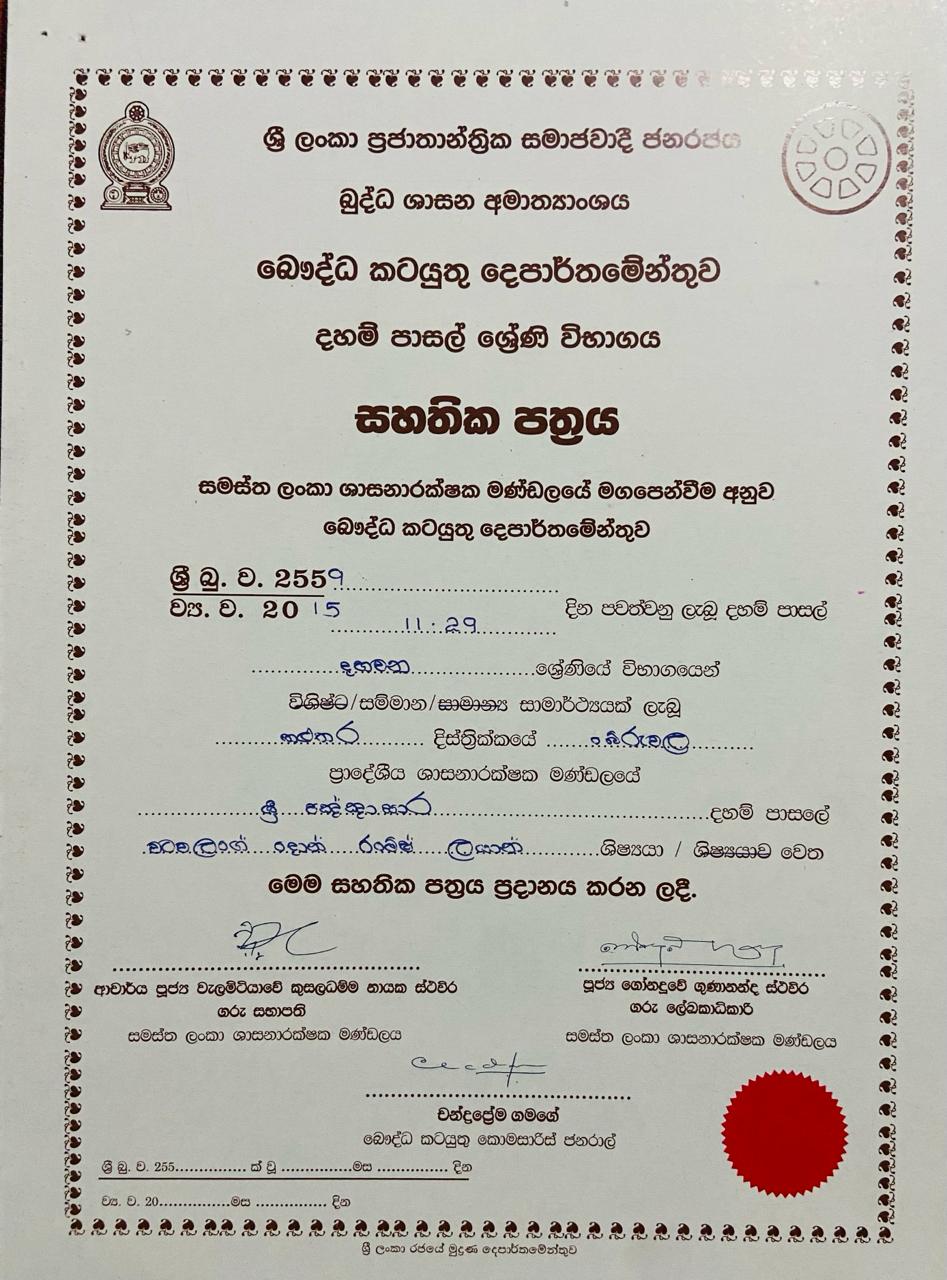 ශ්‍රී ලංකා ප්‍රජාතාන්ත්‍රික සමාජවාදී ජනරජය
බුද්ධ ශාසන අමාත්‍යාංශය
බෞද්ධ කටයුතු දෙපාර්තමේන්තුව
දහම් පාසල් ශ්‍රේණි විභාගය
සහතික පත්‍රය
සමස්ත ලංකා ශාසනාරක්ෂක මණ්ඩලයේ මගපෙන්වීම අනුව
බෞද්ධ කටයුතු දෙපාර්තමේන්තුව
ශ්‍රී බු. ව. 2559
ව්‍ය. ව. 2015
11.29 දින පවත්වනු ලැබූ දහම් පාසල්
දහවන ශ්‍රේණියේ විභාගයෙන්
විශිෂ්ට/සම්මාන/සාමාන්‍ය සාමාර්ථයයක් ලැබූ
කළුතර දිස්ත්‍රික්කයේ බේරුවල
ප්‍රාදේශීය ශාසනාරක්ෂක මණ්ඩලයේ
ශ්‍රී පඤ්ඤාසාර දහම් පාසලේ
දොන් ලයාන් ශිෂ්‍යයා / ශිෂ්‍යයාව වෙත
මෙම සහතික පත්‍රය ප්‍රදානය කරන ලදී.
ආචාර්ය පූජ්‍ය වැලමිටියාවේ කුසලධම්ම නායක ස්ථවිර
ගරු සභාපති
සමස්ත ලංකා ශාසනාරක්ෂක මණ්ඩලය
පූජ්‍ය ගෝනදූවේ ගුණානන්ද ස්ථවිර
ගරු ලේඛකාධිකාරී
සමස්ත ලංකා ශාසනාරක්ෂක මණ්ඩලය
චන්ද්‍රප්‍රේම ගමගේ
බෞද්ධ කටයුතු කොමසාරිස් ජනරාල්
ශ්‍රී බු. ව. 255................ ක් වූ ................මස ................ දින
ව්‍ය. ව. 20................මස ................ දින
ශ්‍රී ලංකා රජයේ මුද්‍රණ දෙපාර්තමේන්තුව